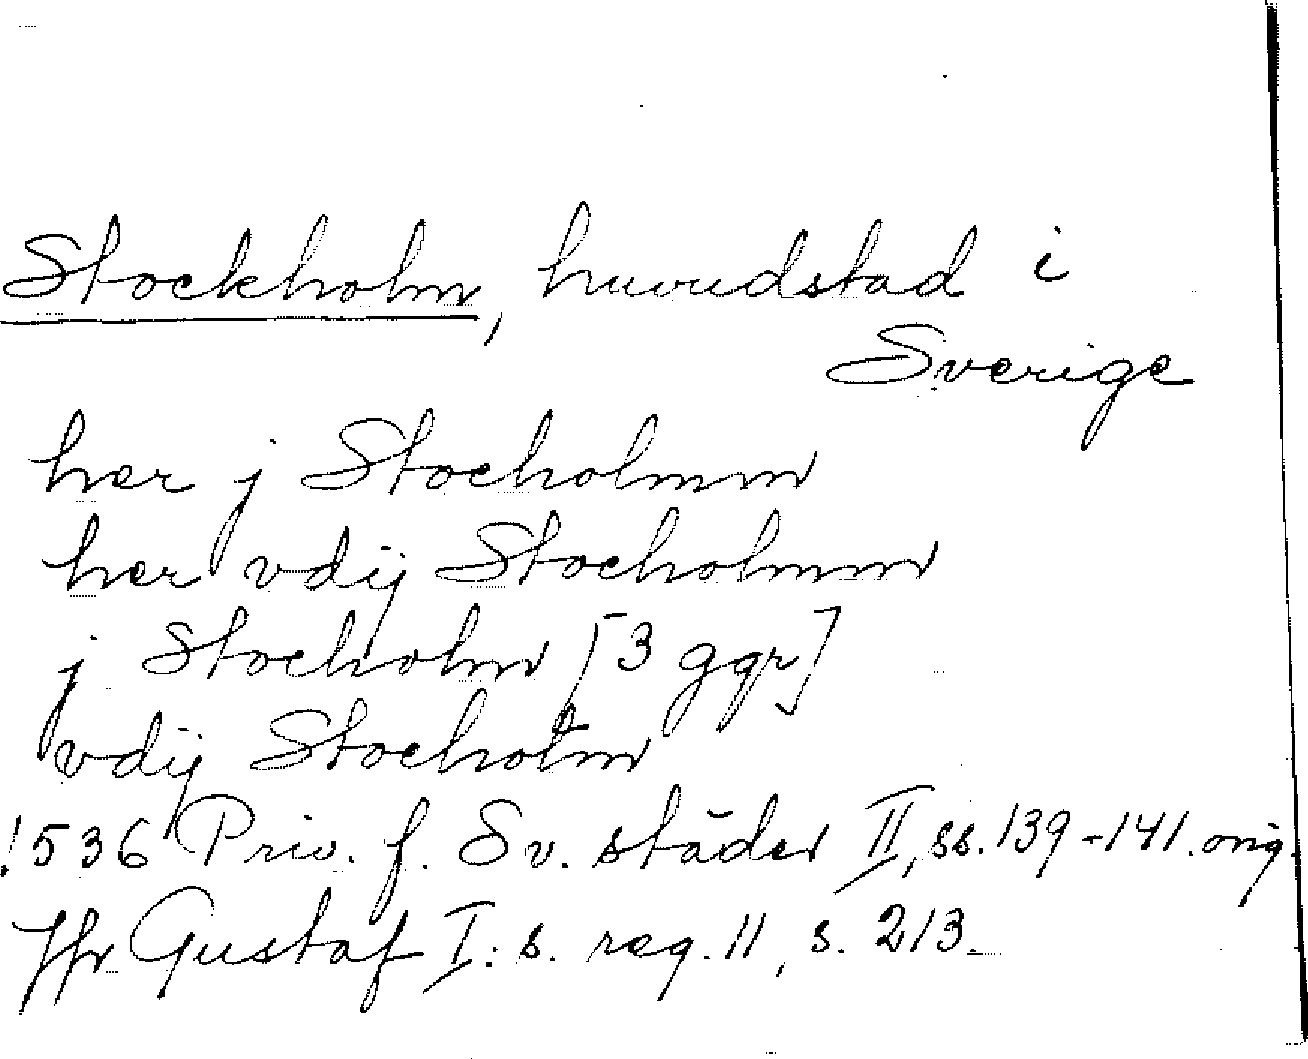 Stockholm, huvudstad i
Sverige
her j Stocholmm
her vdij Stocholmm
j Stocholm [3 ggr]
vdij Stocholm
1536 Priv. f. Sv. städer II, ss. 139-141. orig.
Jfr Gustaf I: s. reg. 11, s. 213.